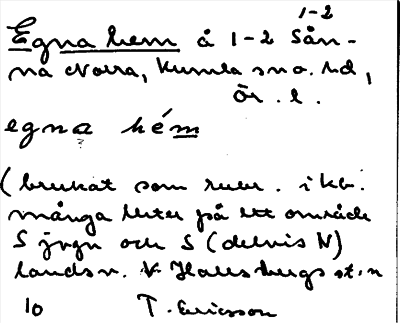 1-2
Egna hem å 1-2 Sån-
na Norra, Kumla sn o. hd,
Ör. l.
egna hém
(brukat som rubr. i kb.
många hus på ett område
S jvgn och S (delvis N)
landsv. V Hallsbergs st:n
10 T. Ericsson